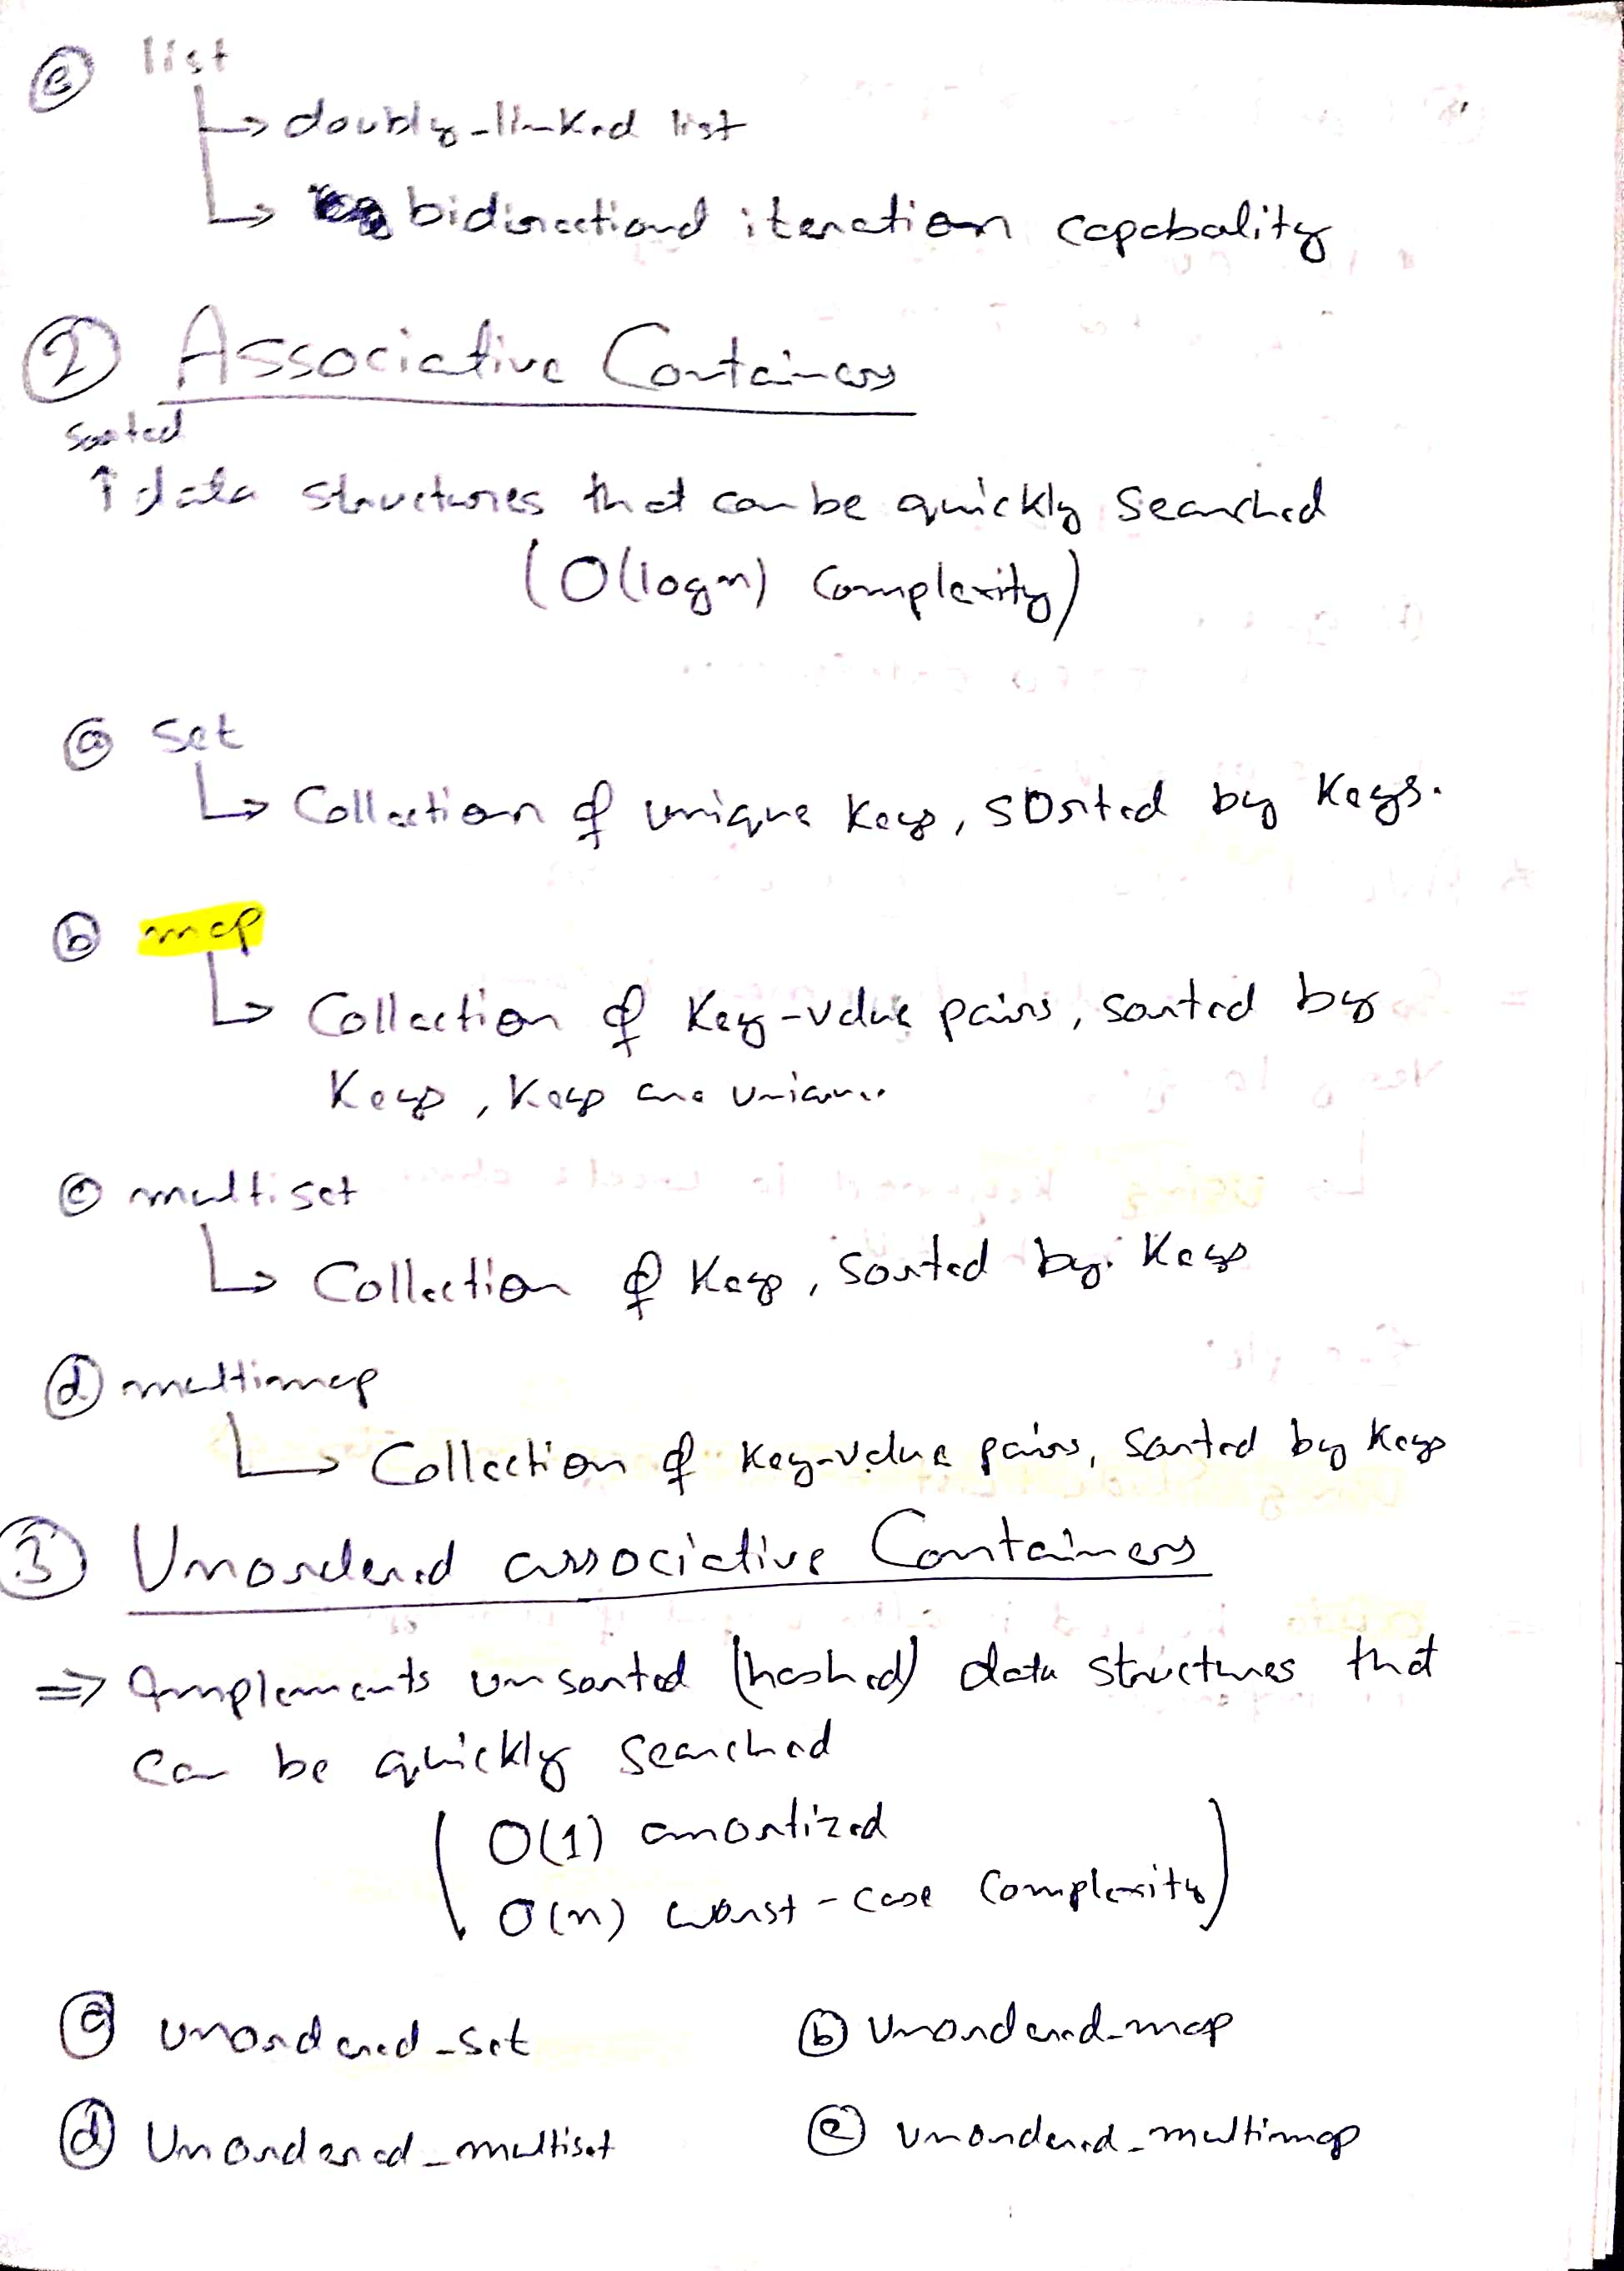 ⓔ list
↳ doubly-linked list
↳ bidirectional iteration capabality
② Associative Containers
sorted
↑ data structures that can be quickly searched
(O(log n) Complexity)
ⓐ set
↳ Collection of unique keys, sorted by keys.
ⓑ map
↳ Collection of key-value pairs, sorted by
keys, keys are unique
ⓒ multiset
↳ Collection of keys, sorted by keys
ⓓ multimap
↳ Collection of key-value pairs, sorted by keys
③ Unordered associative Containers
⇒ Implements unsorted (hashed) data structures that
can be quickly searched
( O(1) amortized
O(n) worst-case Complexity )
ⓐ unordered_set ⓑ unordered_map
ⓓ Unordered_multiset ⓔ unordered_multimap